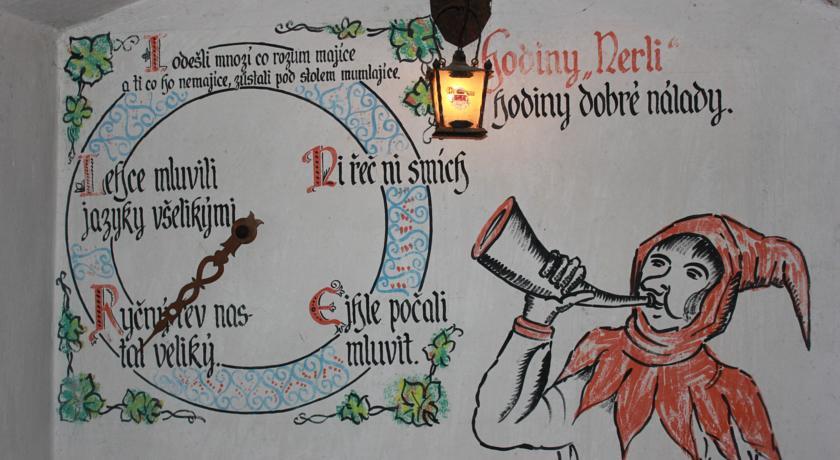 I odešli mnozí co rozum majíce
a ti co ho nemajíce, zůstali pod stolem mumlajíce.
Hodiny „Nerli“
hodiny dobré nálady.
Ni řeč ni smích
Ejhle počali
mluvit.
Ryčný řev nas-
tal veliký.
Lehce mluvili
jazyky všelikými